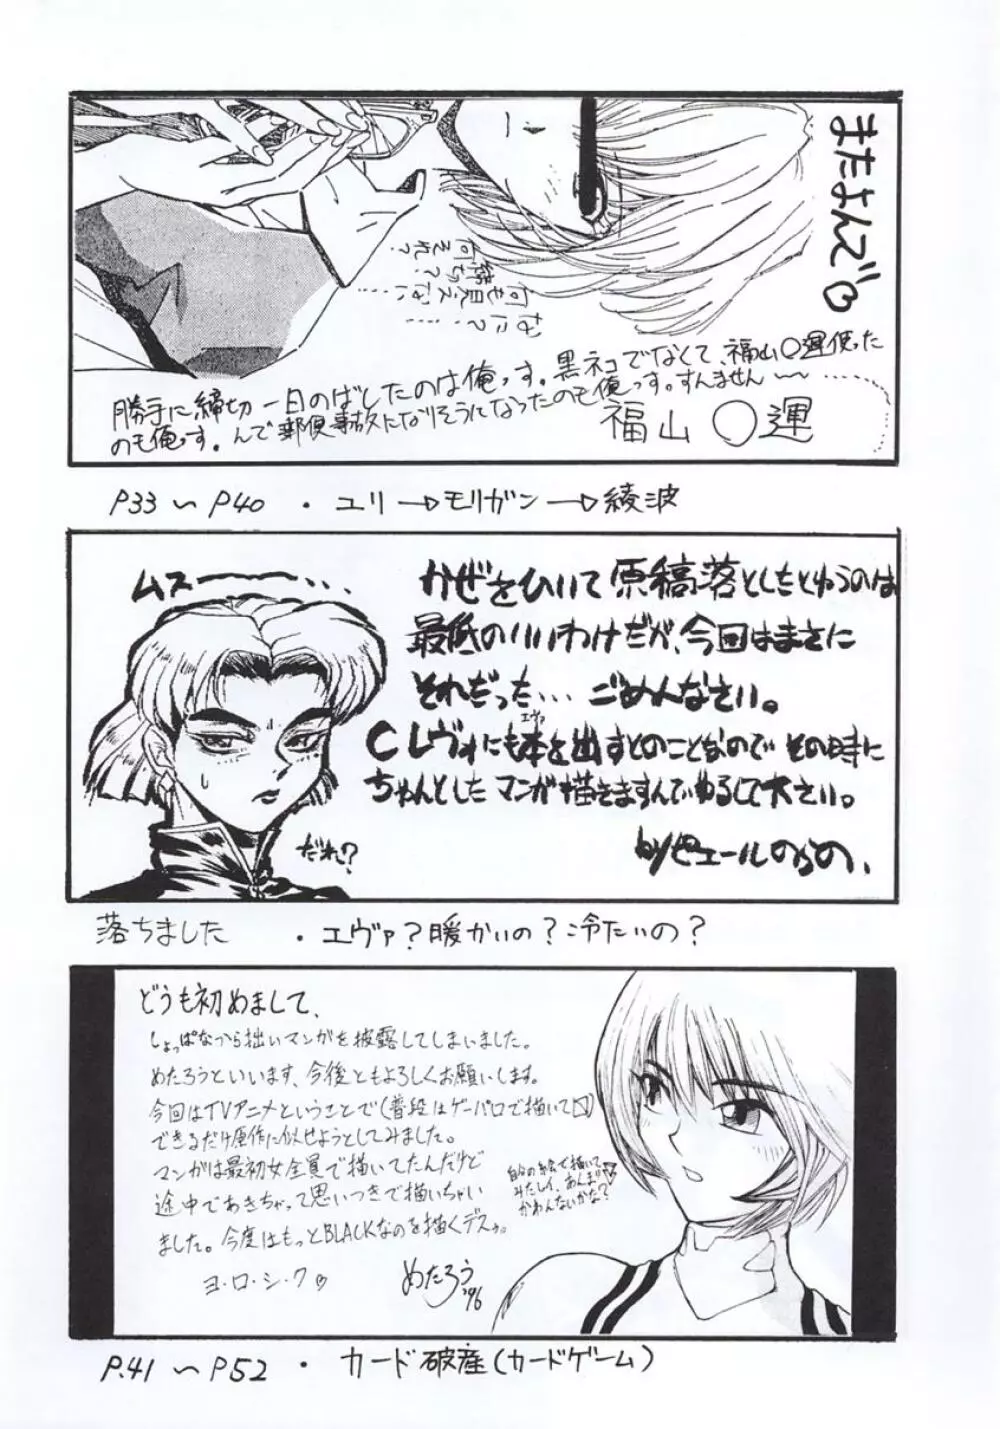 またよんで♡
何それ?
締切?
何も見えない……
なに?……
勝手に締切一日のばしたのは俺っす。黒ネコでなくて、福山〇運使った
のも俺っす。んで郵便事故になりそうになったのも俺っす。すんません〜〜
福山〇運
P33〜P40 ・ ユリ→モリガン→綾波
ムスーー…
かぜをひいて原稿落としたとゆうのは
最低のいいわけだが、今回はまさに
それだった… ごめんなさい。
Cレヴォにもエヴァ本を出すとのことなので その時に
ちゃんとしたマンガ描きますんでゆるして下さい。
だれ?
落ちました ・エヴァ?暖かいの?冷たいの?
どうも初めまして、
しょっぱなから拙いマンガを披露してしまいました。
めたろうといいます、今後ともよろしくお願いします。
今回はTVアニメということで(普段はゲーパロで描いて)
できるだけ原作に似せようとしてみました。
マンガは最初女全員で描いてたんだけど
途中であきちゃって思いつきで描いちゃい
ました。今度はもっとBLACKなのを描くデスゥ。
自分の絵で描いて
みたしィ、あんまり
かわんないかな?
ヨ・ロ・シ・ク♡
めたろう
'96
P.41〜P52 ・ カード破産(カードゲーム)